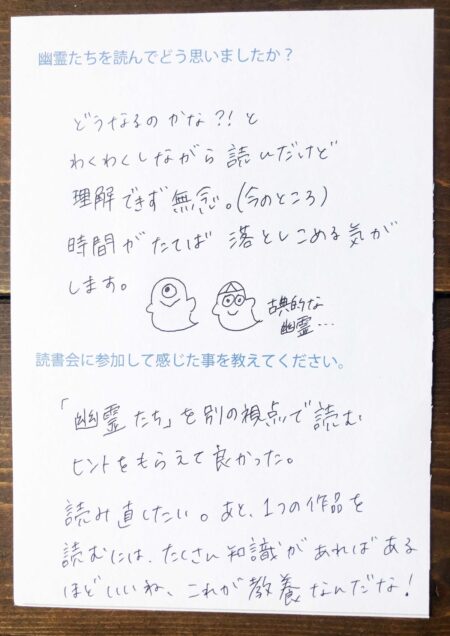 幽霊たちを読んでどう思いましたか？
どうなるのかな？！と
わくわくしながら読んだけど
理解できず無念。(今のところ)
時間がたてば落としこめる気が
します。
古典的な
幽霊…
読書会に参加して感じた事を教えてください。
「幽霊たち」を別の視点で読む
ヒントをもらえて良かった。
読み直したい。あと、1つの作品を
読むには、たくさん知識があればある
ほどいいね、これが教養なんだな！